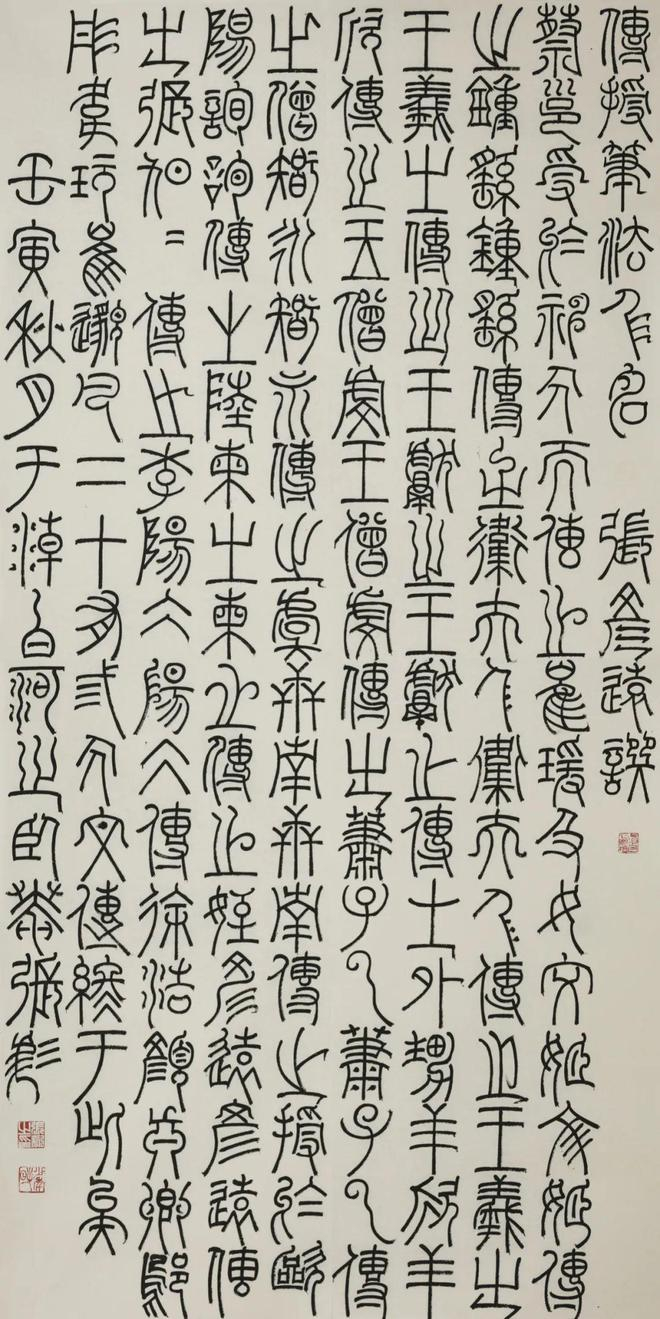 傳授筆法人名 張彥遠譔
蔡邕受於神人而傳之崔瑗及女文姬文姬傳
之鍾繇鍾繇傳之衛夫人衛夫人傳之王羲之
王羲之傳之王獻之王獻之傳之外甥羊欣羊
欣傳之王僧虔王僧虔傳之蕭子雲蕭子雲傳
之僧智永智永傳之虞世南世南傳之授於歐
陽詢詢傳之陸柬之柬之傳之姪彥遠彥遠傳
之張旭=傳之李陽冰陽冰傳徐浩顏真卿鄔
彤韋玩崔邈凡二十有弎人文傳終于此矣
壬寅秋月于漳河之張